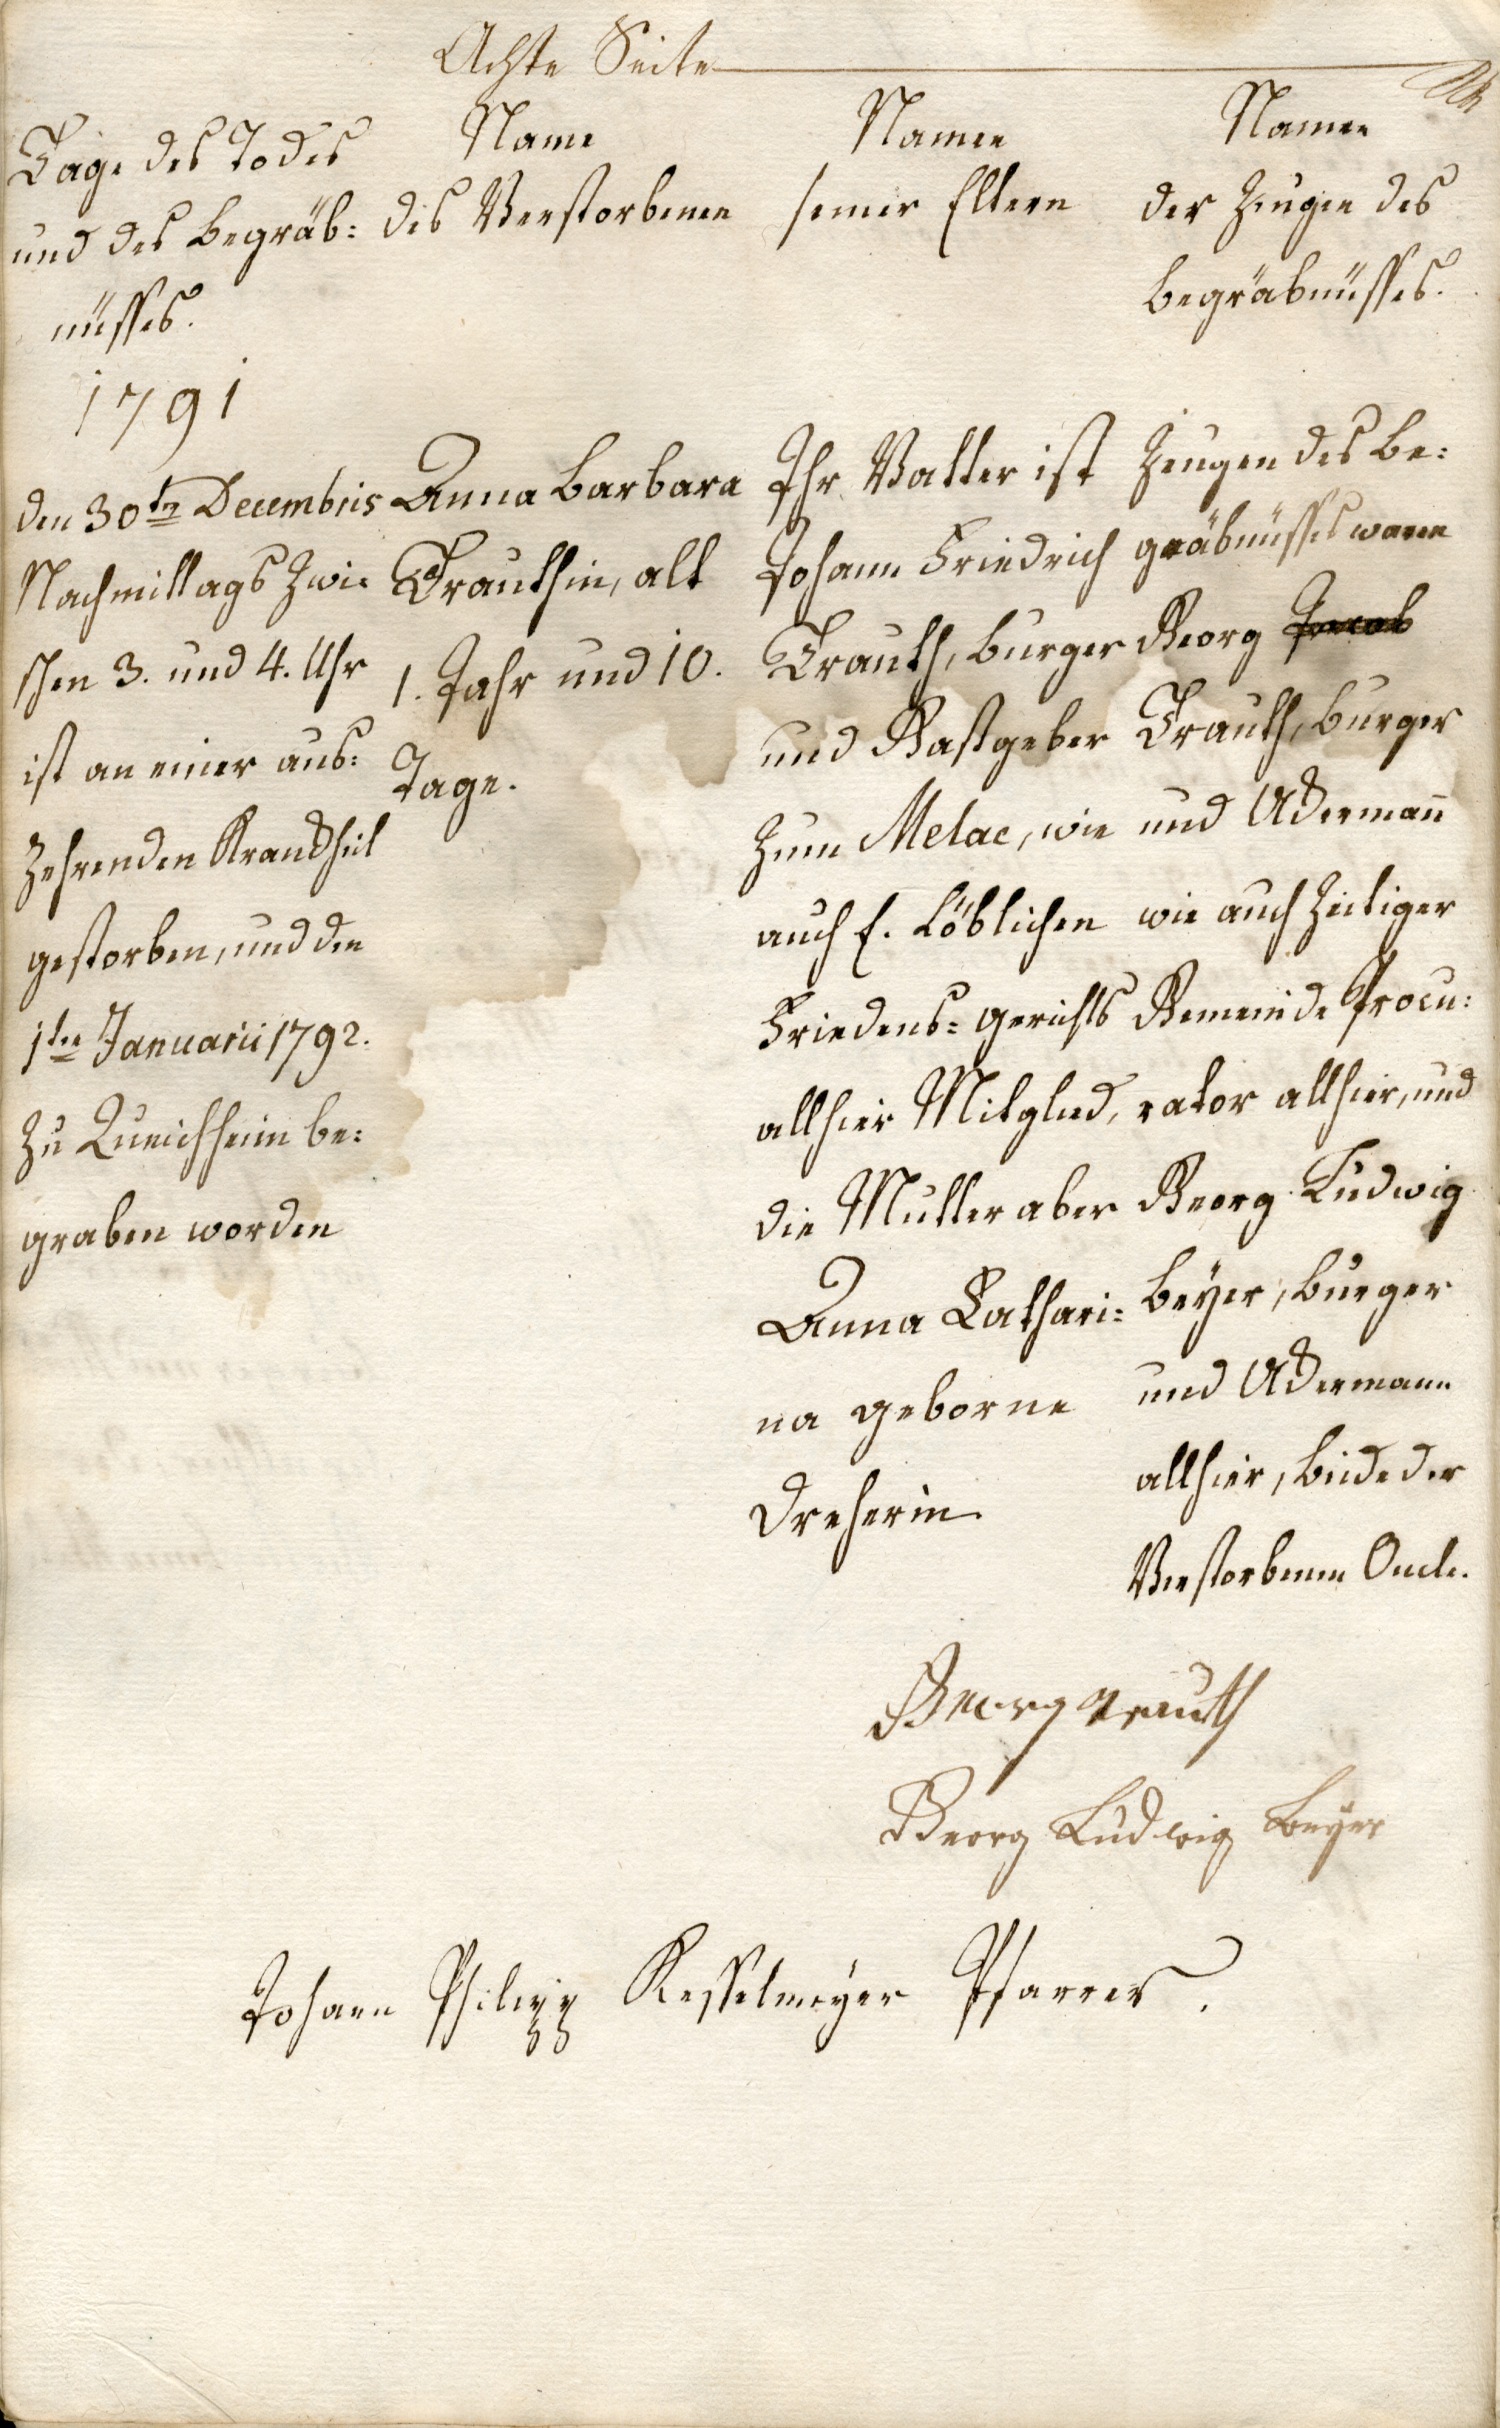 Achte Seite
Tage des Todes
und des Begräb:
nüsses.
1791
den 30ten Decembris
Nachmittags zwi:
schen 3. und 4. Uhr
ist an einer aus:
zehrenden Kranckheit
gestorben, und den
1ten Januarii 1792.
zu Queichheim be:
graben worden
Name
des Verstorbenen
Anna Barbara
Trauthin, alt
1. Jahr und 10.
Tage.
Namen
seiner Eltern
Ihr Vatter ist
Johann Friedrich
Trauth, Burger
und Gastgeber
zum Melac, wie
auch E. Löblichen
Friedens-gerichts
allhier Mitglied,
die Mutter aber
Anna Cathari:
na geborne
Dreherin
Namen
der Zeugen des
Begräbnüsses.
Zeugen des Be:
gräbnüsses waren
Georg Jacob
Trauth, Burger
und Ackermañ
wie auch zeitiger
Gemeinde Procu:
rator allhier, und
Georg Ludwig
Beÿer, Burger
und Ackermann
allhier, beide der
Verstorbenen Oncle.
Georg Trauth
Georg Ludwig Beÿer
Johann Philipp Kesselmeÿer Pfarrer.